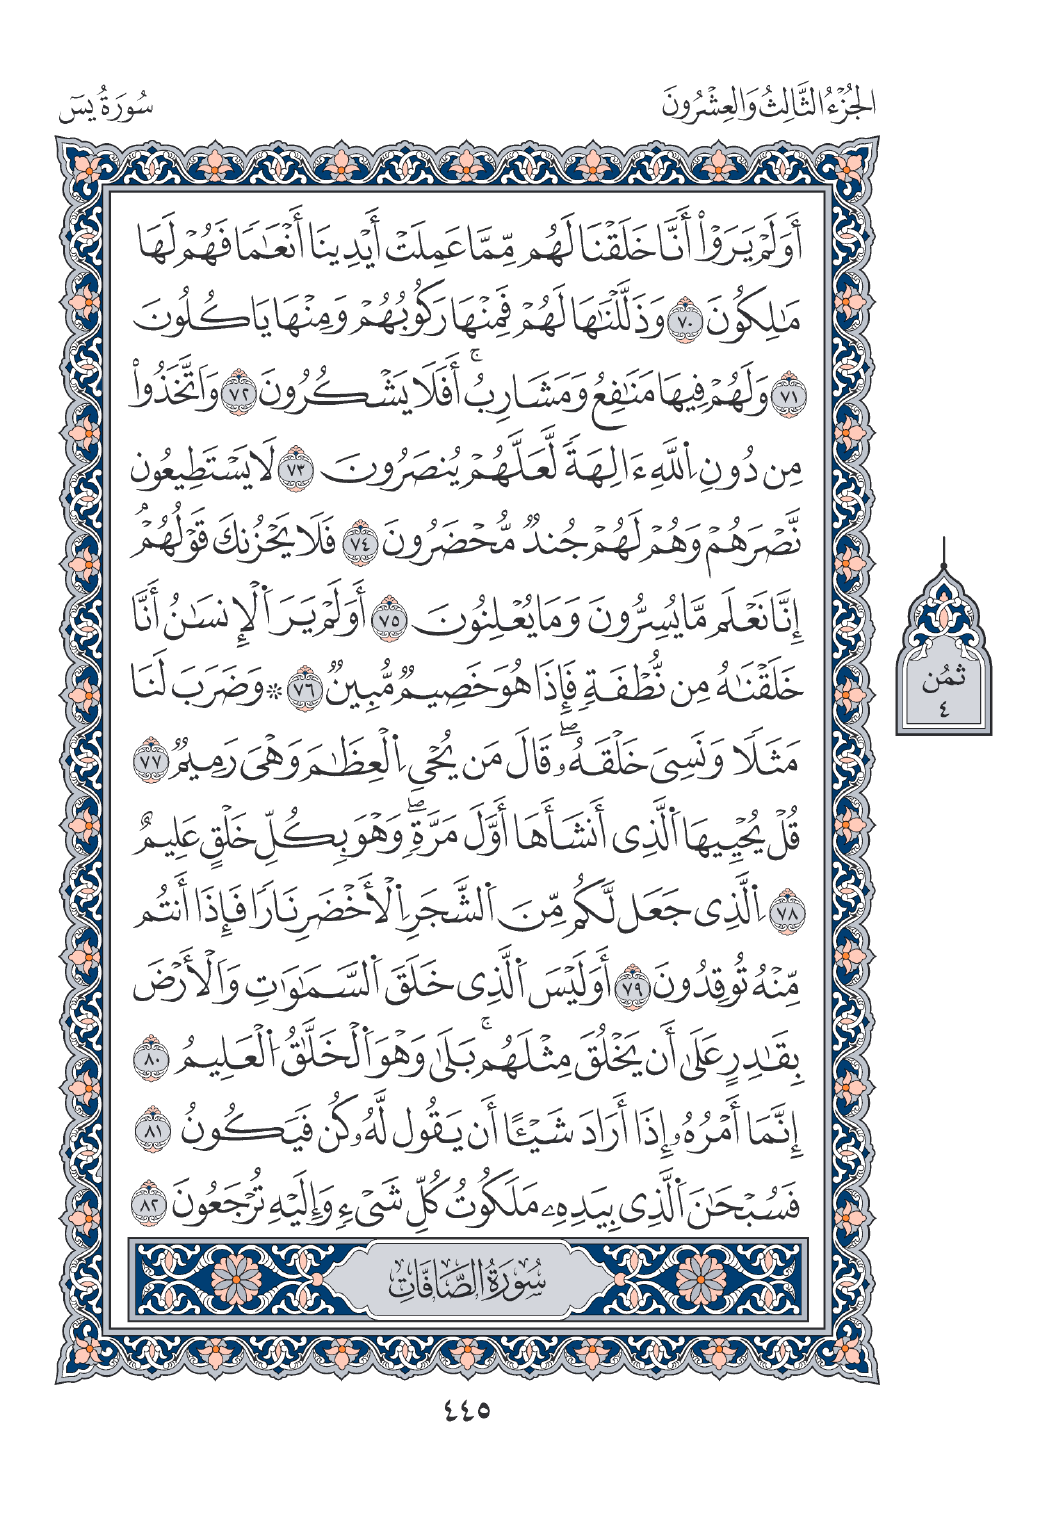 الجُزْءُ الثَّالِثُ وَالعِشْرُونَ
سُورَةُ يسٓ
أَوَلَمْ يَرَوْاْ أَنَّا خَلَقْنَا لَهُم مِّمَّا عَمِلَتْ أَيْدِينَا أَنْعَٰمٗا فَهُمْ لَهَا
مَٰلِكُونَ ٧٠ وَذَلَّلْنَٰهَا لَهُمْ فَمِنْهَا رَكُوبُهُمْ وَمِنْهَا يَاكُلُونَ
٧١ وَلَهُمْ فِيهَا مَنَٰفِعُ وَمَشَارِبُ ۚ أَفَلَا يَشْكُرُونَ ٧٢ وَاتَّخَذُواْ
مِن دُونِ اِ۬للَّهِ ءَالِهَةٗ لَّعَلَّهُمْ يُنصَرُونَ ٧٣ لَا يَسْتَطِيعُونَ
نَصْرَهُمْ وَهُمْ لَهُمْ جُندٞ مُّحْضَرُونَ ٧٤ فَلَا يَحْزُنكَ قَوْلُهُمُۥٓ
إِنَّا نَعْلَم مَّا يُسِرُّونَ وَمَا يُعْلِنُونَ ٧٥ أَوَلَمْ يَرَ اَ۬لْإِنسَٰنُ أَنَّا
خَلَقْنَٰهُ مِن نُّطْفَةٖ فَإِذَا هُوَ خَصِيمٞ مُّبِينٞ ٧٦ ۞ وَضَرَبَ لَنَا
مَثَلٗا وَنَسِيَ خَلْقَهُۥ ۖ قَالَ مَن يُحْيِ اِ۬لْعِظَٰمَ وَهْيَ رَمِيمٞ ٧٧
قُلْ يُحْيِيهَا اَ۬لَّذِي أَنشَأَهَا أَوَّلَ مَرَّةٖ ۖ وَهْوَ بِكُلِّ خَلْقٍ عَلِيمٌ
٧٨ اِ۬لَّذِي جَعَل لَّكُم مِّنَ اَ۬لشَّجَرِ اِ۬لْأَخْضَرِ نَارٗا فَإِذَا أَنتُم
مِّنْهُ تُوقِدُونَ ٧٩ أَوَلَيْسَ اَ۬لَّذِي خَلَقَ اَ۬لسَّمَٰوَٰتِ وَالْأَرْضَ
بِقَٰدِرٍ عَلَىٰ أَن يَخْلُقَ مِثْلَهُم ۚ بَلَىٰ وَهْوَ اَ۬لْخَلَّٰقُ اُ۬لْعَلِيمُ ٨٠
إِنَّمَا أَمْرُهُۥ إِذَا أَرَادَ شَيْـًٔا أَن يَقُول لَّهُۥ كُن فَيَكُونُ ٨١
فَسُبْحَٰنَ اَ۬لَّذِي بِيَدِهِۦ مَلَكُوتُ كُلِّ شَيْءٖ وَإِلَيْهِ تُرْجَعُونَ ٨٢
سُورَةُ الصَّافَّاتِ
ثمُن
٤
٤٤٥